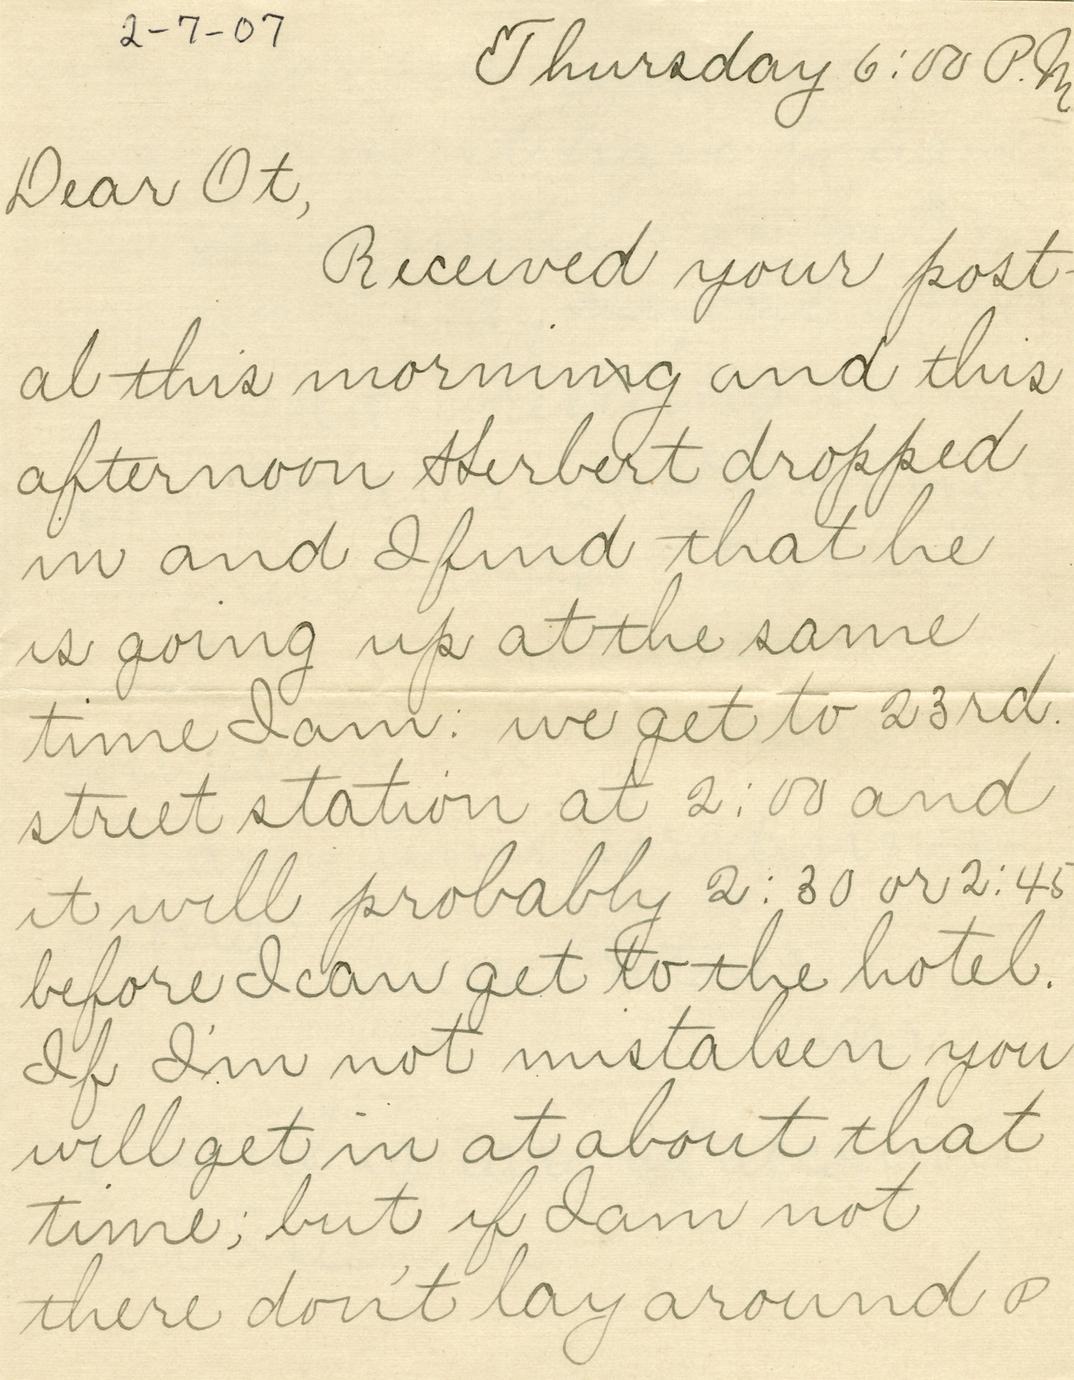 2-7-07
Thursday 6:00 P.M.
Dear Ot,
Received your post-
al this morning and this
afternoon Herbert dropped
in and I find that he
is going up at the same
time I am: we get to 23rd.
street station at 2:00 and
it will probably 2:30 or 2:45
before I can get to the hotel.
If I'm not mistaken you
will get in at about that
time; but if I am not
there don't lay around